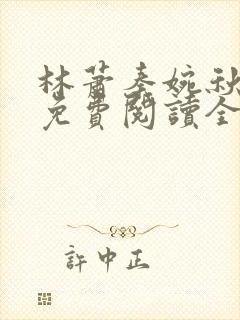 林蕭秦婉秋
免費閱讀全
許中正